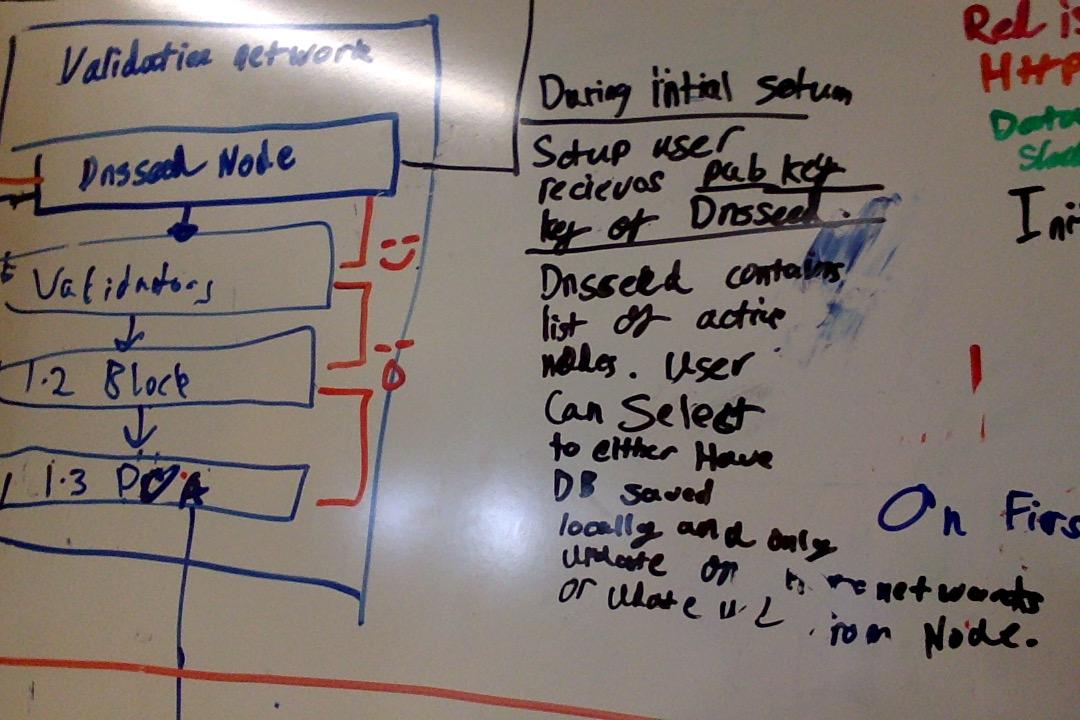 Validation network
Dnsseed Node
Validators
1.2 Block
1.3 POA
During intial setum
Setup user
recieves pub key
key of Dnsseed.
Dnsseed contains
list of active
nodes. User
Can Select
to either Have
DB saved
locally and only
update on networks
or udate from Node.
Red is
HTTP
Data
On Firs